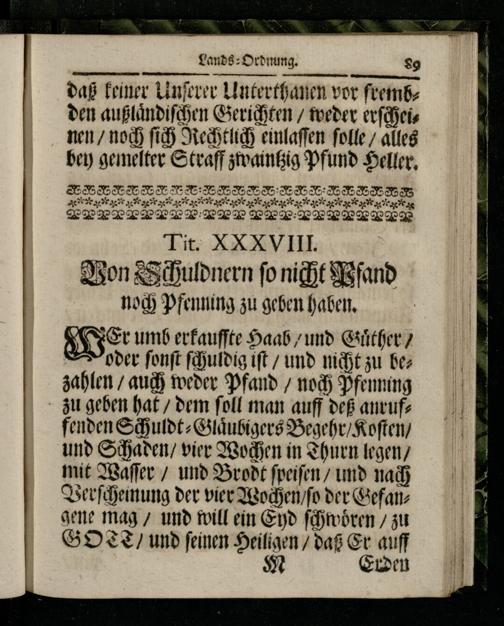 Lands-Ordnung. 89
daß keiner Unserer Unterthanen vor fremb-
den außländischen Gerichten / weder erschei-
nen / noch sich Rechtlich einlassen solle / alles
bey gemelter Straff zwaintzig Pfund Heller.
Tit. XXXVIII.
Von Schuldnern so nicht Pfand
noch Pfenning zu geben haben.
WEr umb erkauffte Haab / und Güther /
oder sonst schuldig ist / und nicht zu be-
zahlen / auch weder Pfand / noch Pfenning
zu geben hat / dem soll man auff deß anruf-
fenden Schuldt-Gläubigers Begehr/Kosten/
und Schaden/ vier Wochen in Thurn legen/
mit Wasser / und Brodt speisen / und nach
Verscheinung der vier Wochen/so der Gefan-
gene mag / und will ein Eyd schwören / zu
GOTT/ und seinen Heiligen / daß Er auff
M Erden